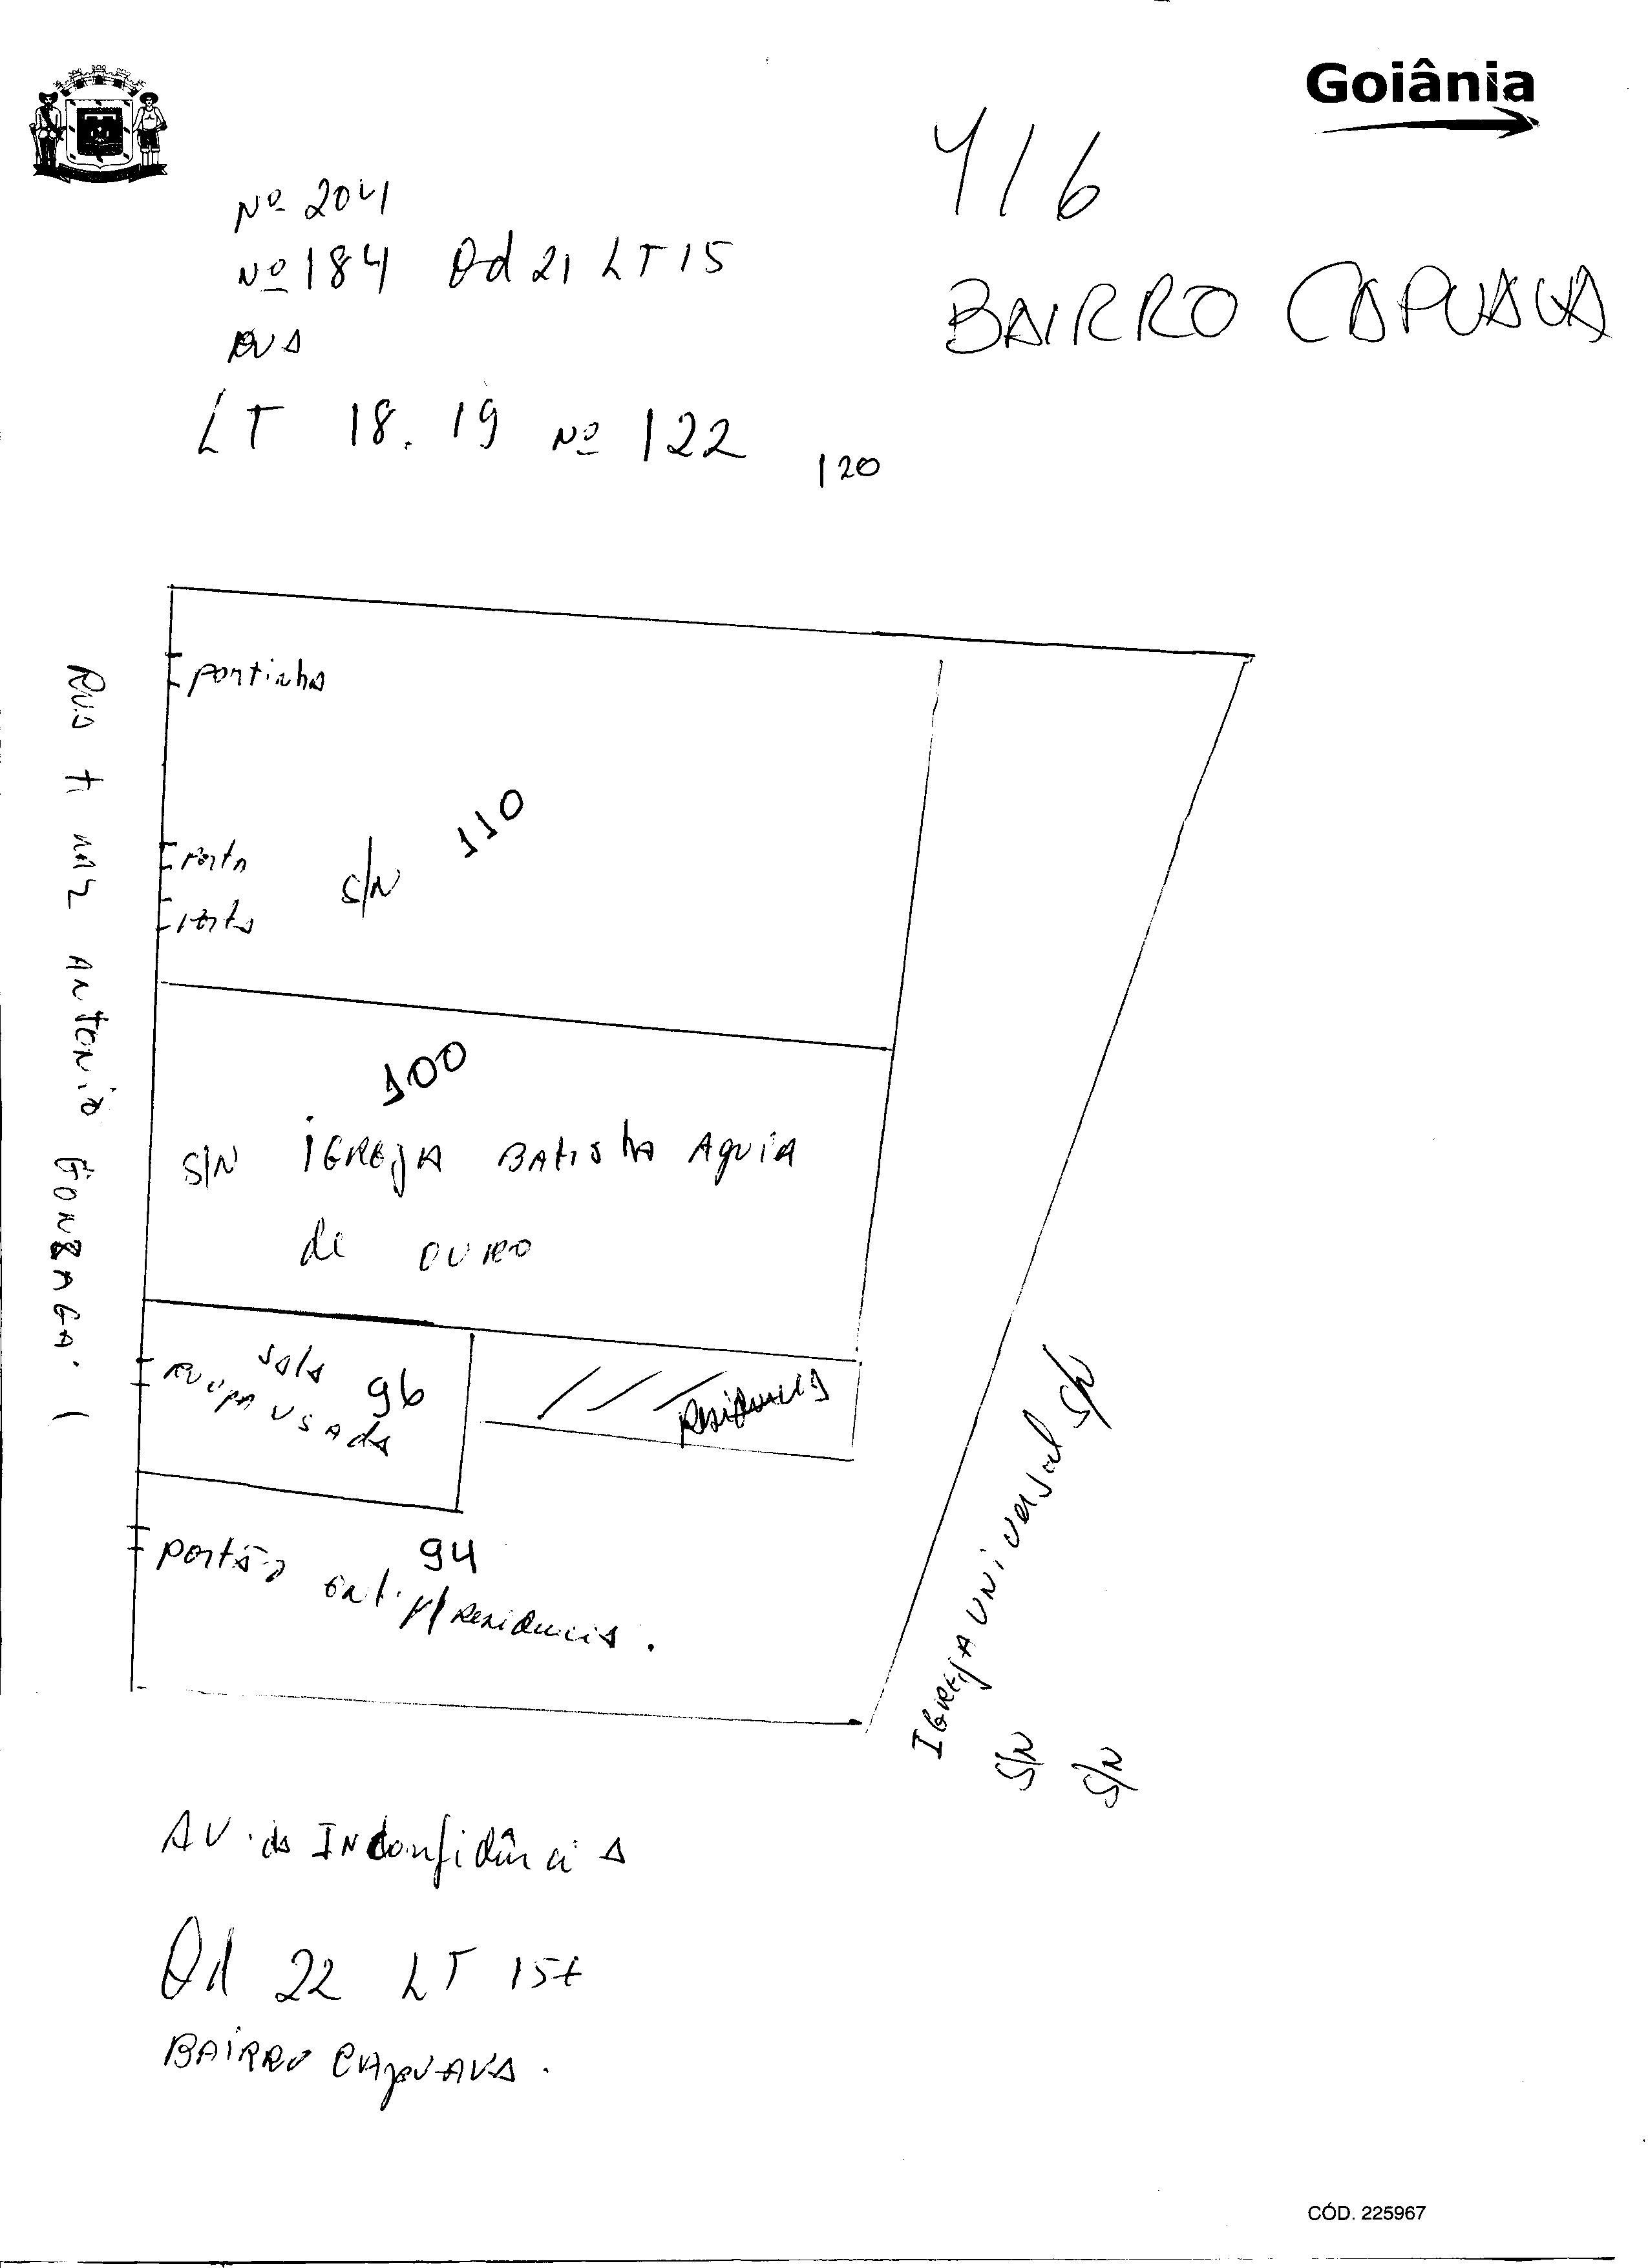 Goiânia
416
Nº 2041
Nº 184 Qd 21 LT 15
BAIRRO CAPUAVA
RUA
LT 18.19 Nº 122 120
portinha
porta
S/N 110
porta
100
S/N IGREJA BATISTA AGUIA
de OURO
sala 96
ROUPA USADA
Residencia
94
portão ent. p/ Residencia.
RUA ANTONIO GONZAGA.
IGREJA UNIVERSAL S/N
S/N
S/N
AV. da INconfidência
Qd 22 LT 15
BAIRRO CAPUAVA.
CÓD. 225967